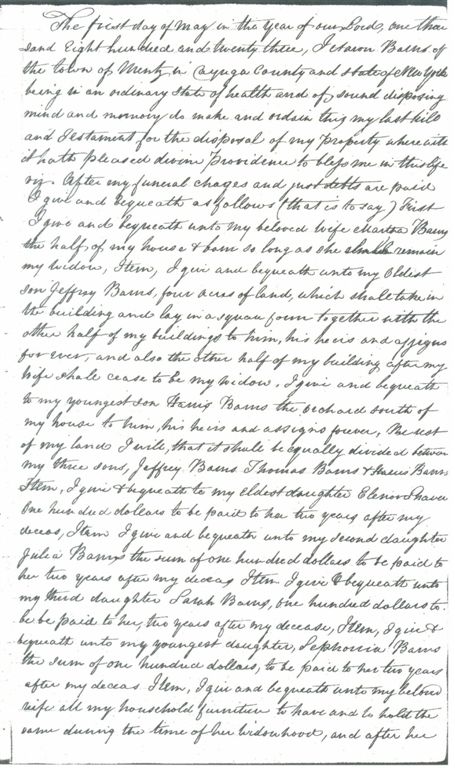 The first day of May in the Year of our Lord, one thou
sand Eight hundred and twenty three, I Aaron Barns of
the town of Mentz in Cayuga County and state of New York
being in an ordinary state of health and of sound disposing
mind and memory do make and ordain this my last Will
and Testament for the disposal of my Property wherewith
it hath pleased divine Providence to bless me in this life
viz. After my funeral chages and just debts are paid
I give and bequeath as follows (that is to say) First
I give and bequeath unto my beloved Wife Martha Barns
the half, of my house & barn so long as she remain
my widow, Item, I give and bequeath unto my Oldest
son Jeffrey Barns, four acres of land, which shall take in
the building and lay in a square form together with the
other half of my buildings to him, his heirs and assigns
for ever, and also the other half of my building after my
wife shall cease to be my widow, I give and bequeath
to my youngest son Harris Barns the orchard south of
my house to him, his heirs and assigns forever, The rest
of my land I will, that it shall be equally divided between
my three sons, Jeffrey Barns Thomas Barns & Harris Barns
Item, I give & bequeath to my eldest daughter Elenor
One hundred dollars to be paid to her two years after my
deceas, Item I give and bequeath unto my second daughter
Julia Barns the sum of one hundred dollars to be paid to
her two years after my deceas Item I give & bequeath unto
my third daughter Sarah Barns, one hundred dollars to
be be paid to her, two years after my decease, Item, I give &
bequeath unto my youngest daughter, Sephronia Barns
the sum of one hundred dollars, to be paid to her two years
after my deceas Item, I give and bequeath unto my beloved
wife all my household furniture to have and to hold the
same during the time of her widowhood, and after her